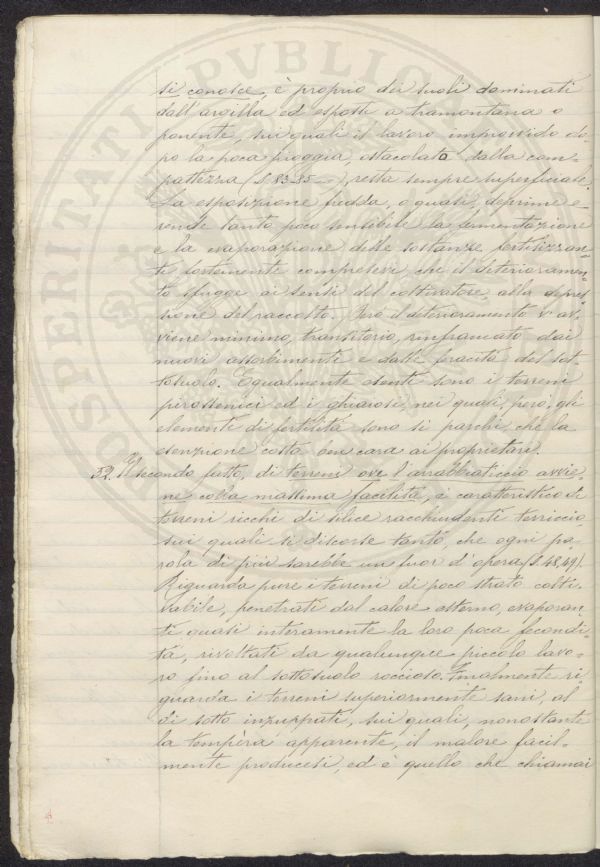 si conosce, è proprio dei suoli dominati
dall'argilla ed esposti a tramontana o
ponente, sui quali il lavoro improvvido do-
po la poca pioggia, ostacolata dalla com-
pattezza (§. 83-85), resta sempre superficiale.
La esposizione fredda, o quasi, deprime e
rende tanto poco sensibile la fermentazione
e la evaporazione delle sostanze fertilizzan-
ti fortemente compresevi, che il deterioramen-
to sfugge ai sensi del coltivatore, alla depres-
sione del raccolto. Però il deterioramento v'av-
viene minimo, transitorio, rinfrancato dai
nuovi assorbimenti e dall' feracità del sot-
tosuolo. Egualmente esenti sono i terreni
pirossenici ed i ghiaiosi, nei quali, però, gli
elementi di fertilità sono sì parchi, che la
esenzione costa ben cara ai proprietari.
52. Il secondo fatto, di terreni ove l'arrabbiaticcio avvie-
ne colla massima facilità, è caratteristico di
terreni ricchi di silice racchiudenti terriccio
sui quali si discorse tanto, che ogni pa-
rola di più sarebbe un fuor d'opera (§. 48, 49).
Riguarda pure i terreni di poco strato colti-
vabile, penetrati dal calore esterno, evaporan-
ti quasi interamente la loro poca fecondi-
tà, rivoltati da qualunque piccolo lavo-
ro fino al sottosuolo roccioso. Finalmente ri-
guarda i terreni superiormente sani, al
di sotto inzuppati, sui quali, nonostante
la tempèra apparente, il malore facil-
mente producesi, ed è quello che chiamai
PROSPERITATI PVBLICA